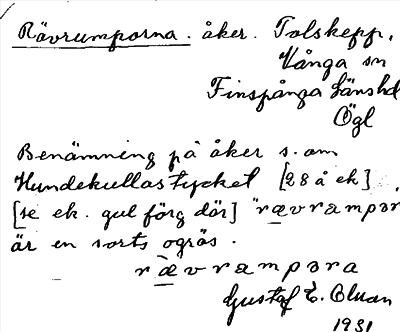 Rävrumporna. åker. Tolskepp,
Vånga sn
Finspånga länshd
Ögl
Benämning på åker s. om
Hundekullastycket [28 å ek].
[se ek. gul färg där] "rævrampər
är en sorts ogräs.
rævrampəra
Gustaf E. Olman
1931